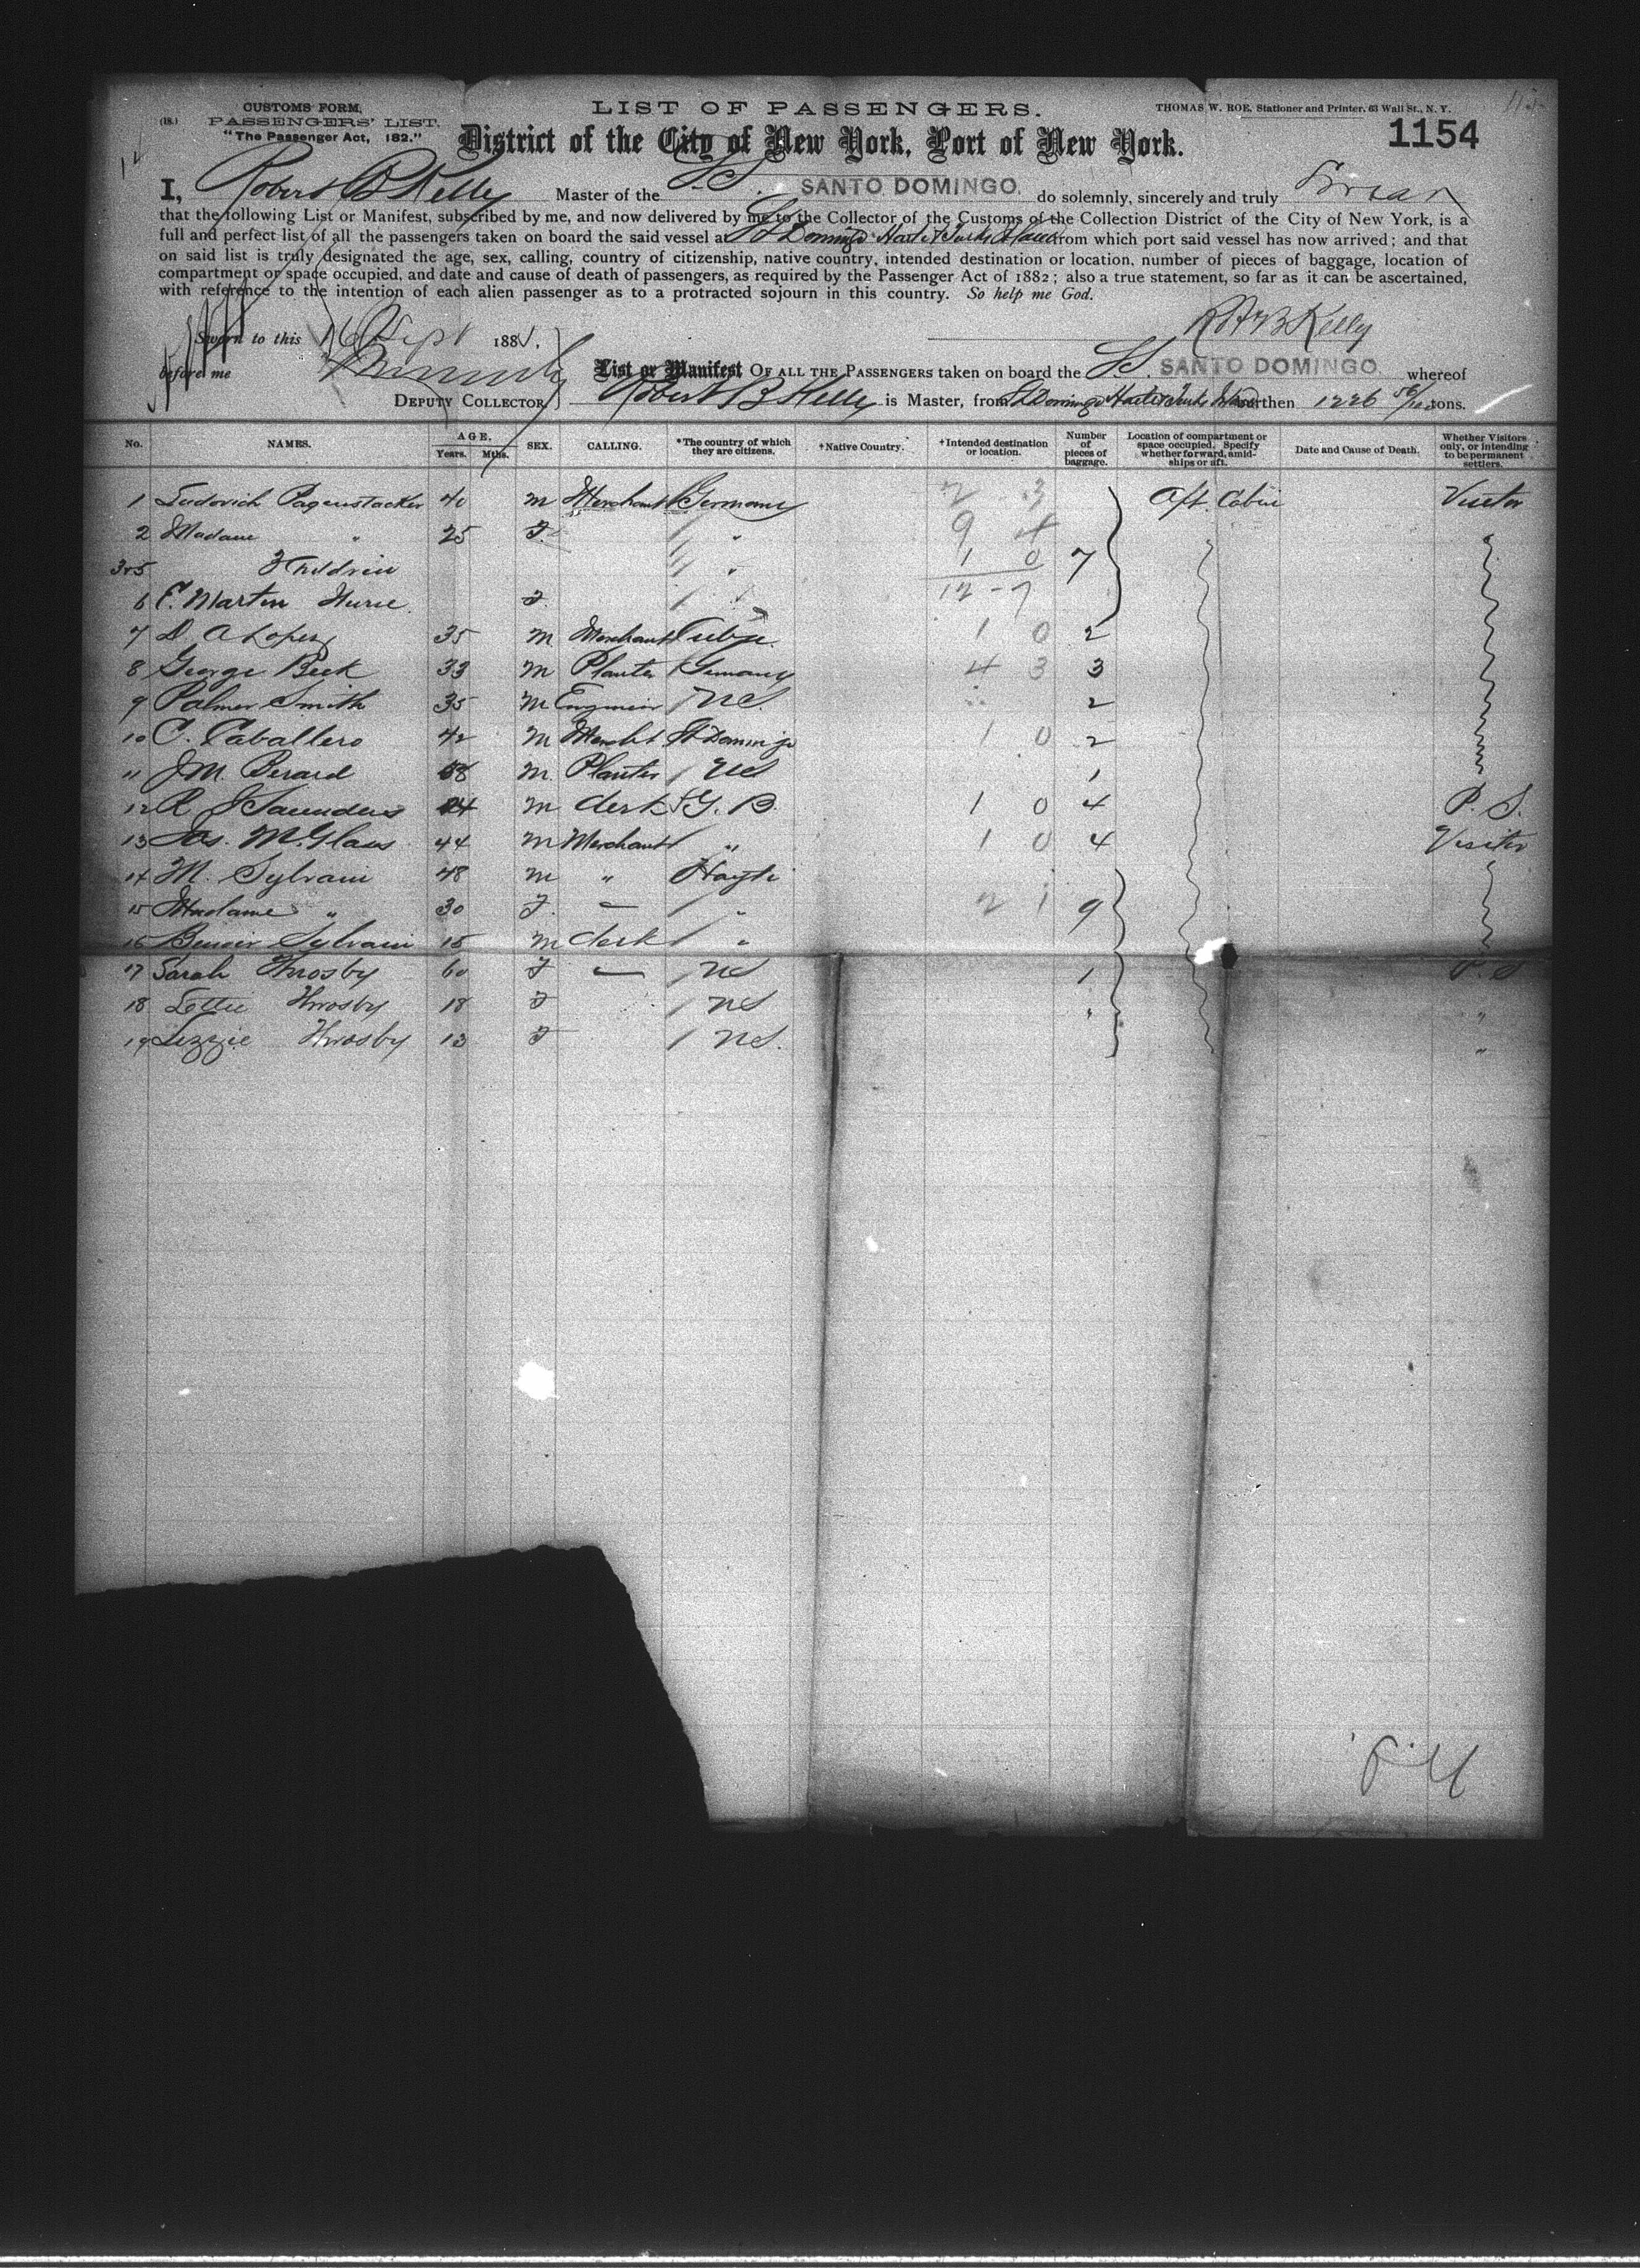 CUSTOMS FORM,
(18.) PASSENGERS' LIST.
"The Passenger Act, 182."
LIST OF PASSENGERS.
THOMAS W. ROE, Stationer and Printer, 63 Wall St., N. Y.
1154
District of the City of New York, Port of New York.
I, Robert B Kelly Master of the SS. SANTO DOMINGO. do solemnly, sincerely and truly Swear
that the following List or Manifest, subscribed by me, and now delivered by me to the Collector of the Customs of the Collection District of the City of New York, is a
full and perfect list of all the passengers taken on board the said vessel at St Domingo Haiti & Turks Island from which port said vessel has now arrived; and that
on said list is truly designated the age, sex, calling, country of citizenship, native country, intended destination or location, number of pieces of baggage, location of
compartment or space occupied, and date and cause of death of passengers, as required by the Passenger Act of 1882; also a true statement, so far as it can be ascertained,
with reference to the intention of each alien passenger as to a protracted sojourn in this country. So help me God.
Robt B Kelly
Sworn to this 16 Sept 188
before me
List or Manifest OF ALL THE PASSENGERS taken on board the SS. SANTO DOMINGO. whereof
DEPUTY COLLECTOR Robert B Kelly is Master, from St Domingo Haiti & Turks Island burthen 1226 56/100 tons.
No. NAMES. AGE. Years. Mths. SEX. CALLING. *The country of which they are citizens. †Native Country. †Intended destination or location. Number of pieces of baggage. Location of compartment or space occupied. Specify whether forward, amidships or aft. Date and Cause of Death. Whether Visitors only, or intending to be permanent settlers.
1 Ludovich Pagenstacker 40 M Merchant Germany 2 3 Aft. Cabin Visitor
2 Madam " 25 F. " 9 4
3 & 5 3 Children " 1 0 7
6 F. Martin Nurse F. 12-7
7 D. A Lopez 35 M Merchant Cuba 1 0 2
8 George Beck 33 M Planter Germany 4 3 3
9 Palmer Smith 35 M Engineer US. 2
10 C. Caballero 42 M Mercht St Domingo 1 0 2
11 J M. Berard 58 M. Planter US 1
12 R J Saunders 24 M Clerk G. B. 1 0 4 P. S.
13 Jas. McGlaus 44 M Merchant " 1 0 4 Visitor
14 M. Sylvain 48 M " Hayti
15 Madame " 30 F. — " 2 1 9
16 Benoir Sylvain 15 M Clerk "
17 Sarah Throsby 60 F — US 1 P. S
18 Lottie Throsby 18 F US " "
19 Lizzie Throsby 13 F US. "